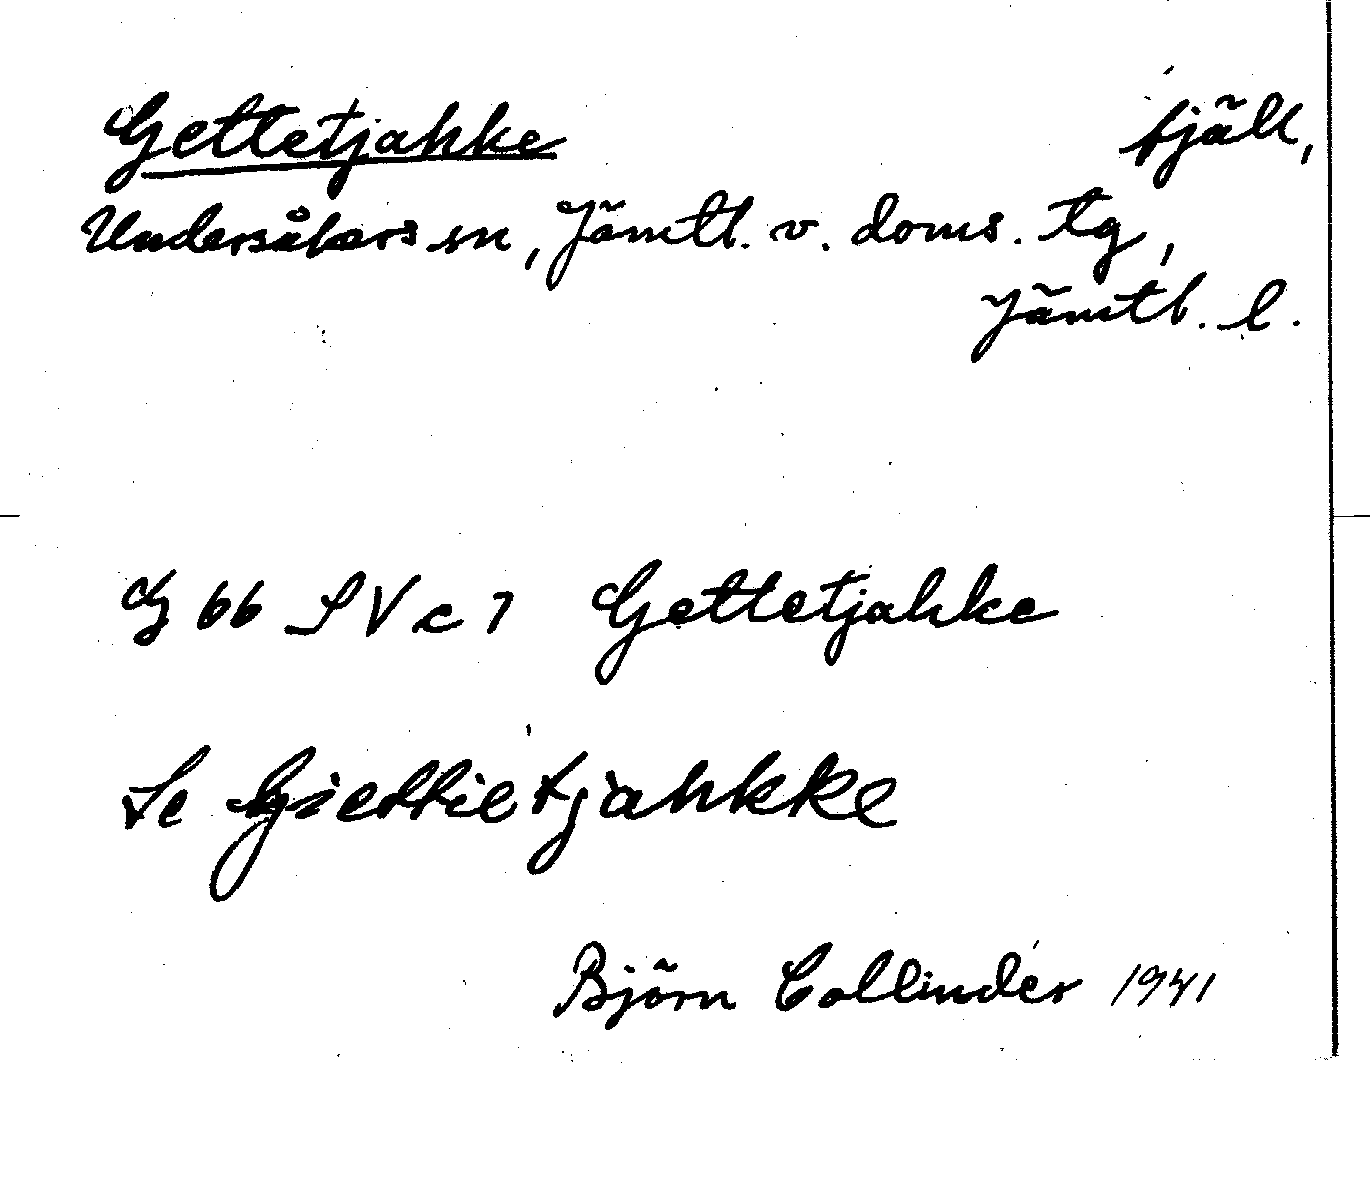 Gettetjahke fjäll,
Undersåkers sn, Jämtl. v. doms. tg,
Jämtl. l.
G 66 SV c 7 Gettetjahke
Se Giettietjahkke
Björn Collinder 1941